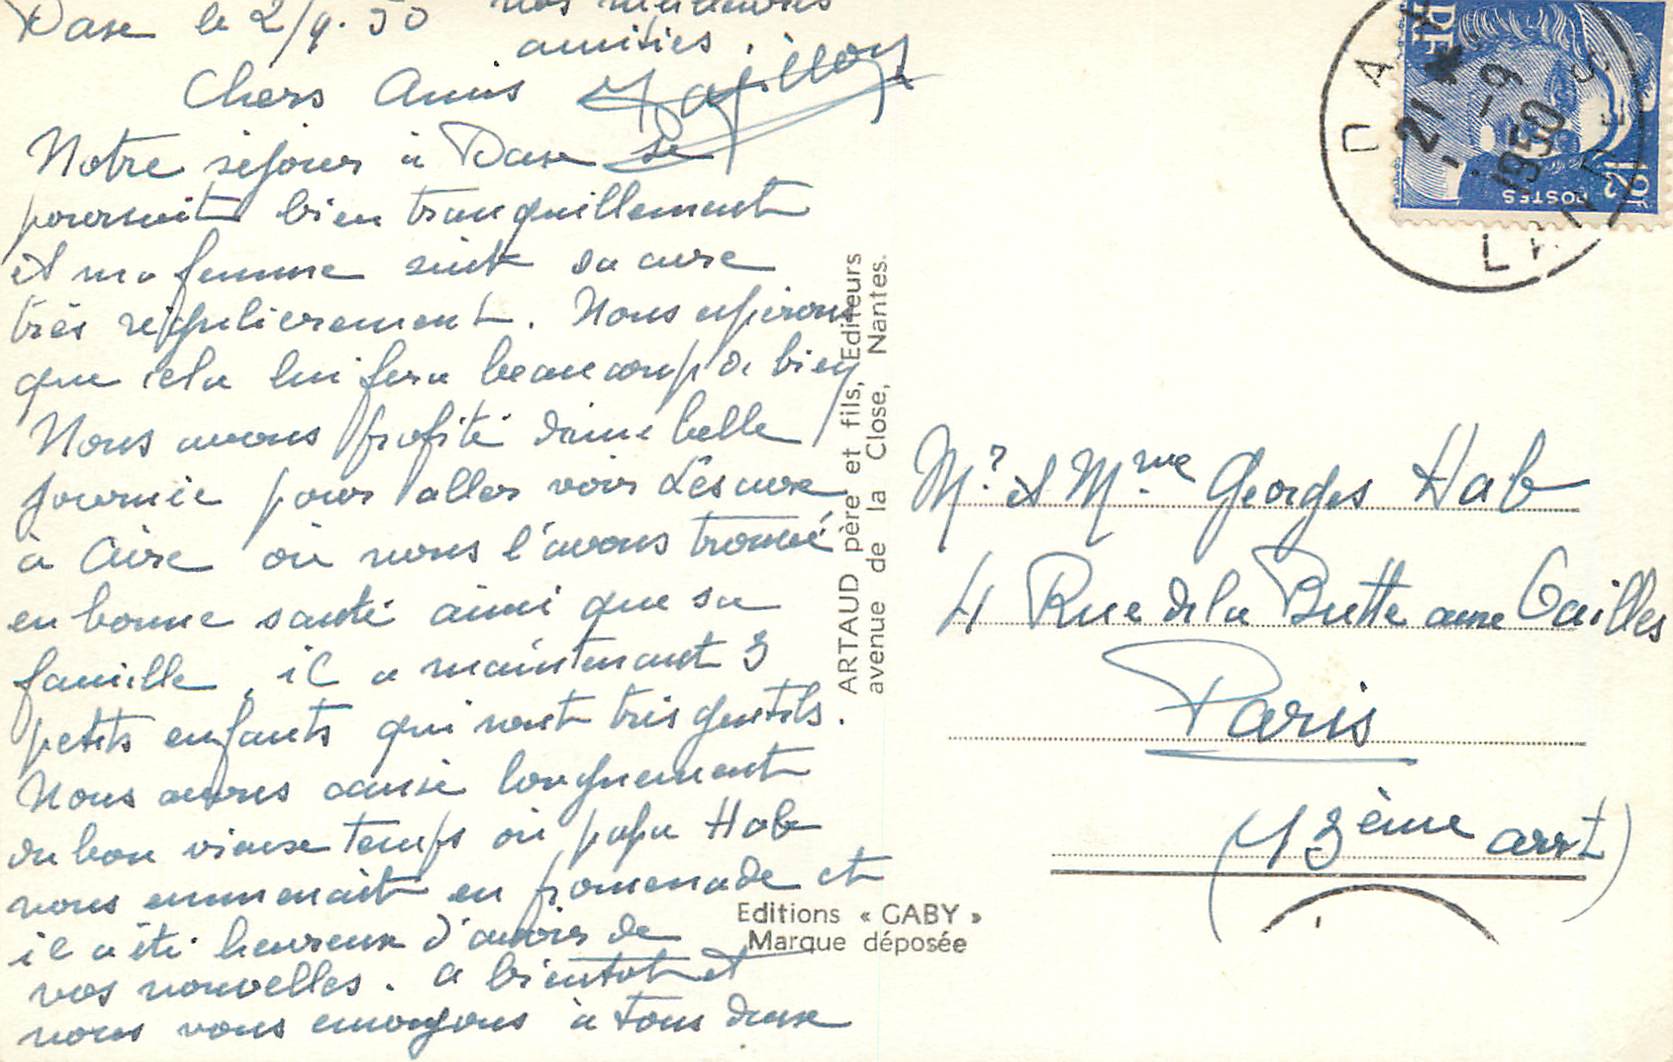 Dax le 2/9.50
Chers Amis
Notre séjour à Dax se
poursuit bien tranquillement
et ma femme suit sa cure
très régulièrement. Nous espérons
que cela lui fera beaucoup de bien
Nous avons profité d'une belle
journée pour aller voir
à Aire où nous l'avons trouvé
en bonne santé ainsi que sa
famille, il a maintenant 3
petits enfants qui sont très gentils.
Nous avons causé longuement
du bon vieux temps où papa Hab
nous emmenait en promenade et
il a été heureux d'avoir de
vos nouvelles. A bientôt et
nous vous envoyons à tous deux
nos meilleures
amitiés.
ARTAUD père et fils, Editeurs
avenue de la Close, Nantes.
Editions « GABY »
Marque déposée
DAX
LANDES
21
-9
1950
RF
12f
POSTES
Mr et Mme Georges Hab
4 Rue de la Butte aux Cailles
Paris
(13ème arrt)